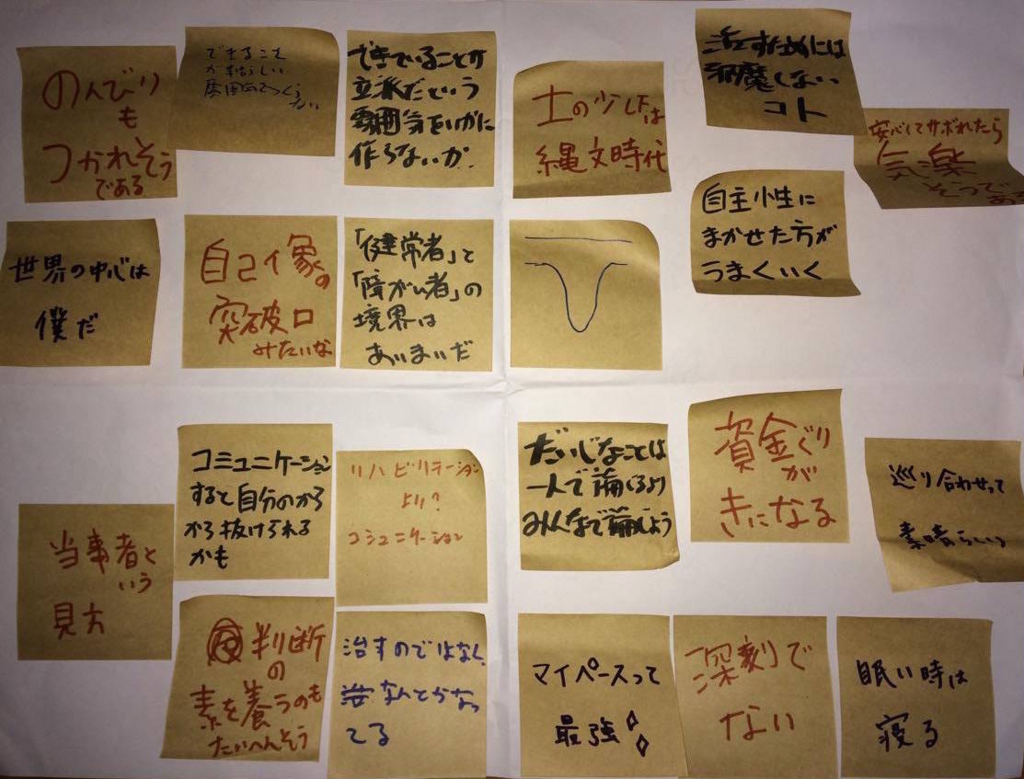 のんびり
も
つかれそう
である
できること
できていることが
立派だという
雰囲気をいかに
作らないか.
土の少しFは
縄文時代
活かすためには
邪魔しない
コト
安心してサボれたら
気楽
そうである
世界の中心は
僕だ
自己像の
突破口
みたいな
「健常者」と
「障がい者」の
境界は
あいまいだ
自主性に
まかせた方が
うまくいく
当事者と
いう
見方
コミュニケーション
すると自分のから
から抜けられる
かも
リハビリテーション
より?
コミュニケーション
だいじなことは
一人で論じるより
みんなで論じよう
資金ぐり
が
きになる
巡り合わせって
素晴らしいっ
判断
の
素を養うのも
たいへんそう
治すのではなく、
なんとかなっ
てる
マイペースって
最強
深刻で
ない
眠い時は
寝る